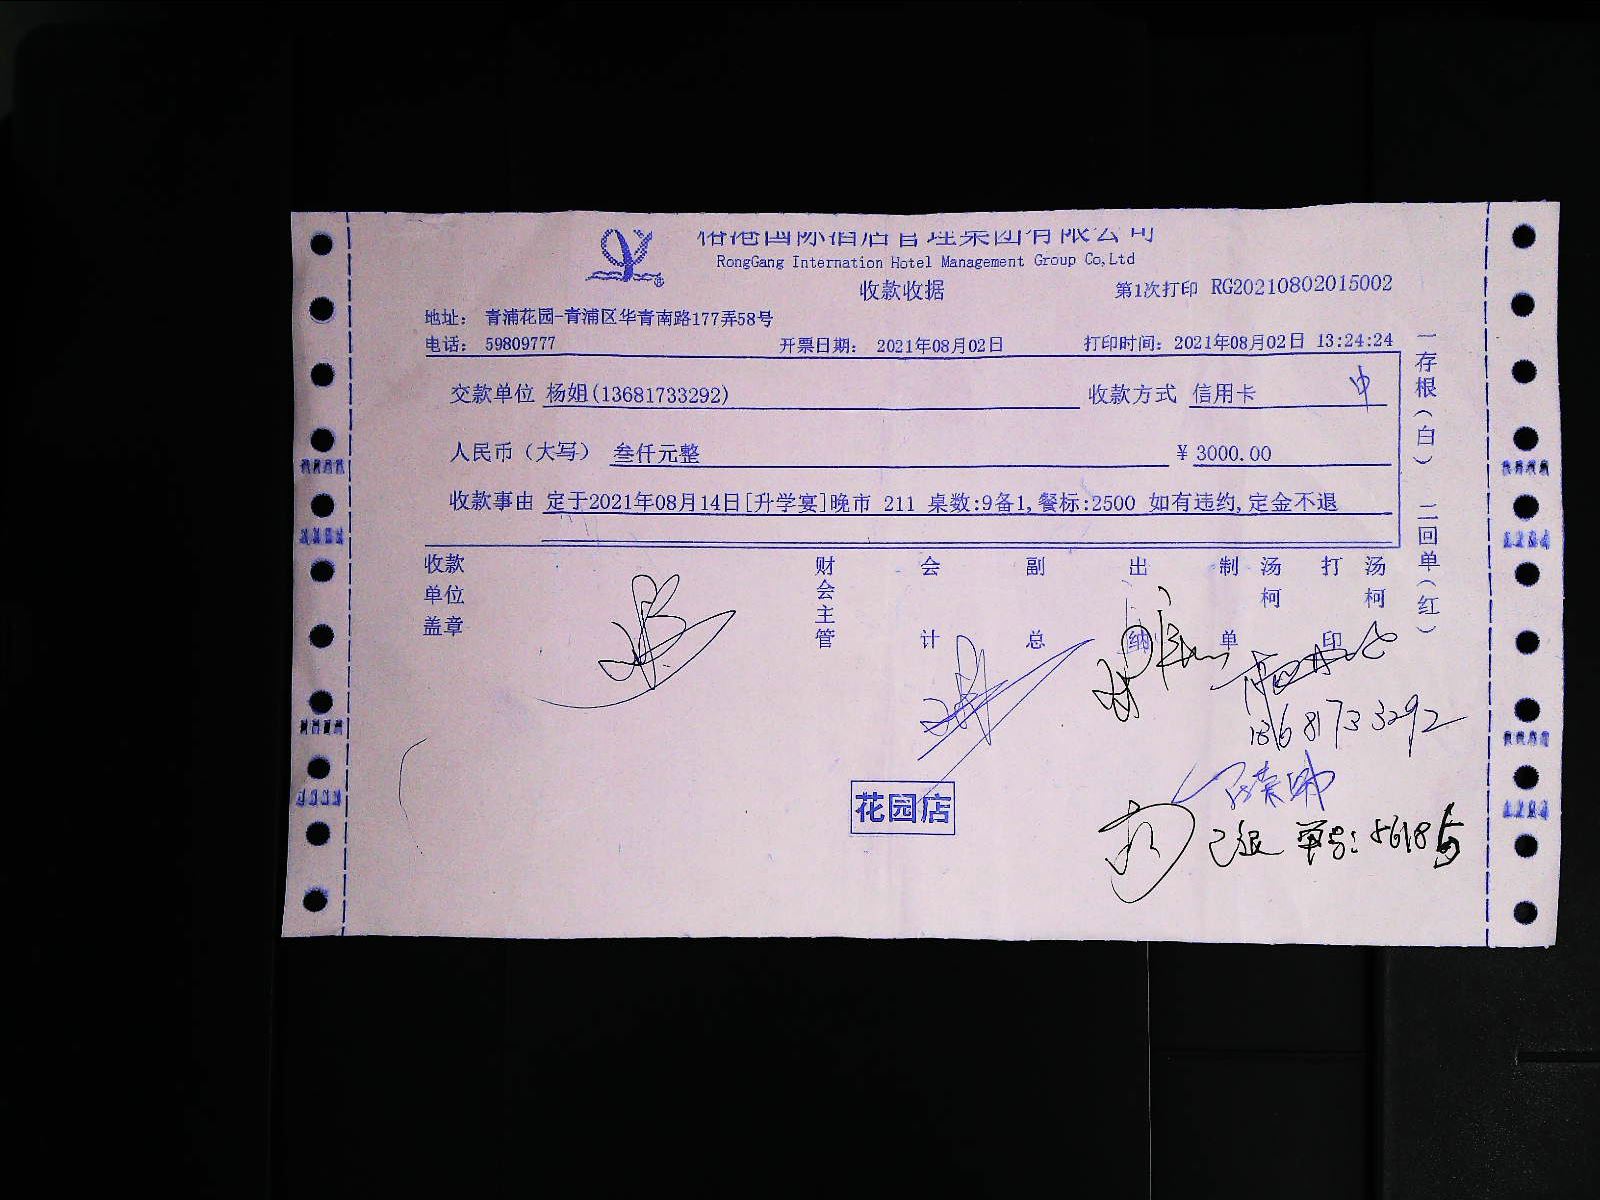 港国际酒店管理集团有限公司
RongGang Internation Hotel Management Group Co,Ltd
收款收据
第1次打印 RG20210802015002
地址： 青浦花园-青浦区华青南路177弄58号
电话： 59809777 开票日期： 2021年08月02日 打印时间：2021年08月02日 13:24:24
交款单位 杨姐(13681733292) 收款方式 信用卡
人民币（大写） 叁仟元整 ¥3000.00
收款事由 定于2021年08月14日[升学宴]晚市 211 桌数:9备1,餐标:2500 如有违约,定金不退
一存根（白） 二回单（红）
收款单位盖章 财会主管 会计 副总 出纳 制单 汤柯 打印 汤柯
13681733292
花园店
已退 单号: 56185